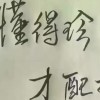 懂得珍
才配